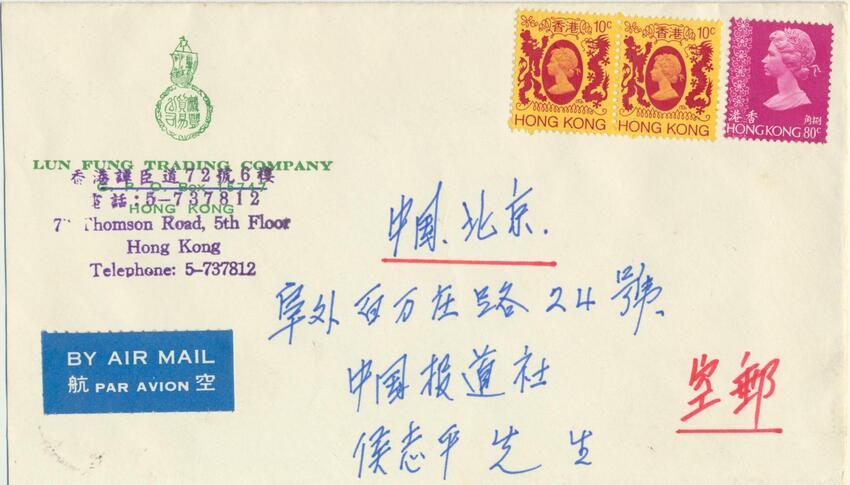 香港 10c
HONG KONG
香港 10c
HONG KONG
香港
HONG KONG 80c
LUN FUNG TRADING COMPANY
G. P. O. Box 15747
HONG KONG
香港譚臣道72號6樓
電話:5-737812
Thomson Road, 5th Floor
Hong Kong
Telephone: 5-737812
中国.北京.
阜外百万庄路24號.
中国报道社
侯志平先生
BY AIR MAIL
航 PAR AVION 空
空郵